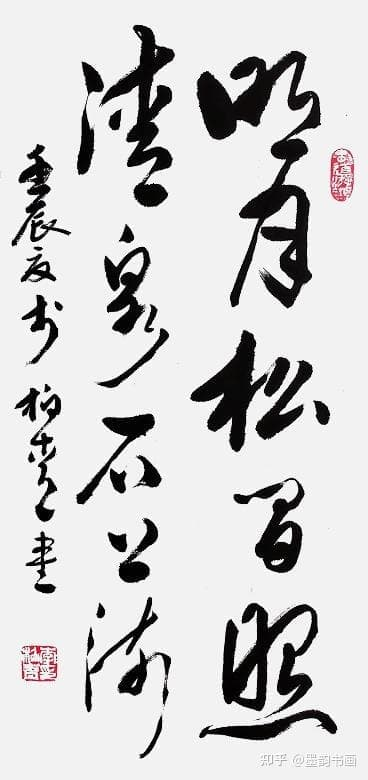 明月松間照
清泉石上流
壬辰夏 書
知乎 @墨韵书画